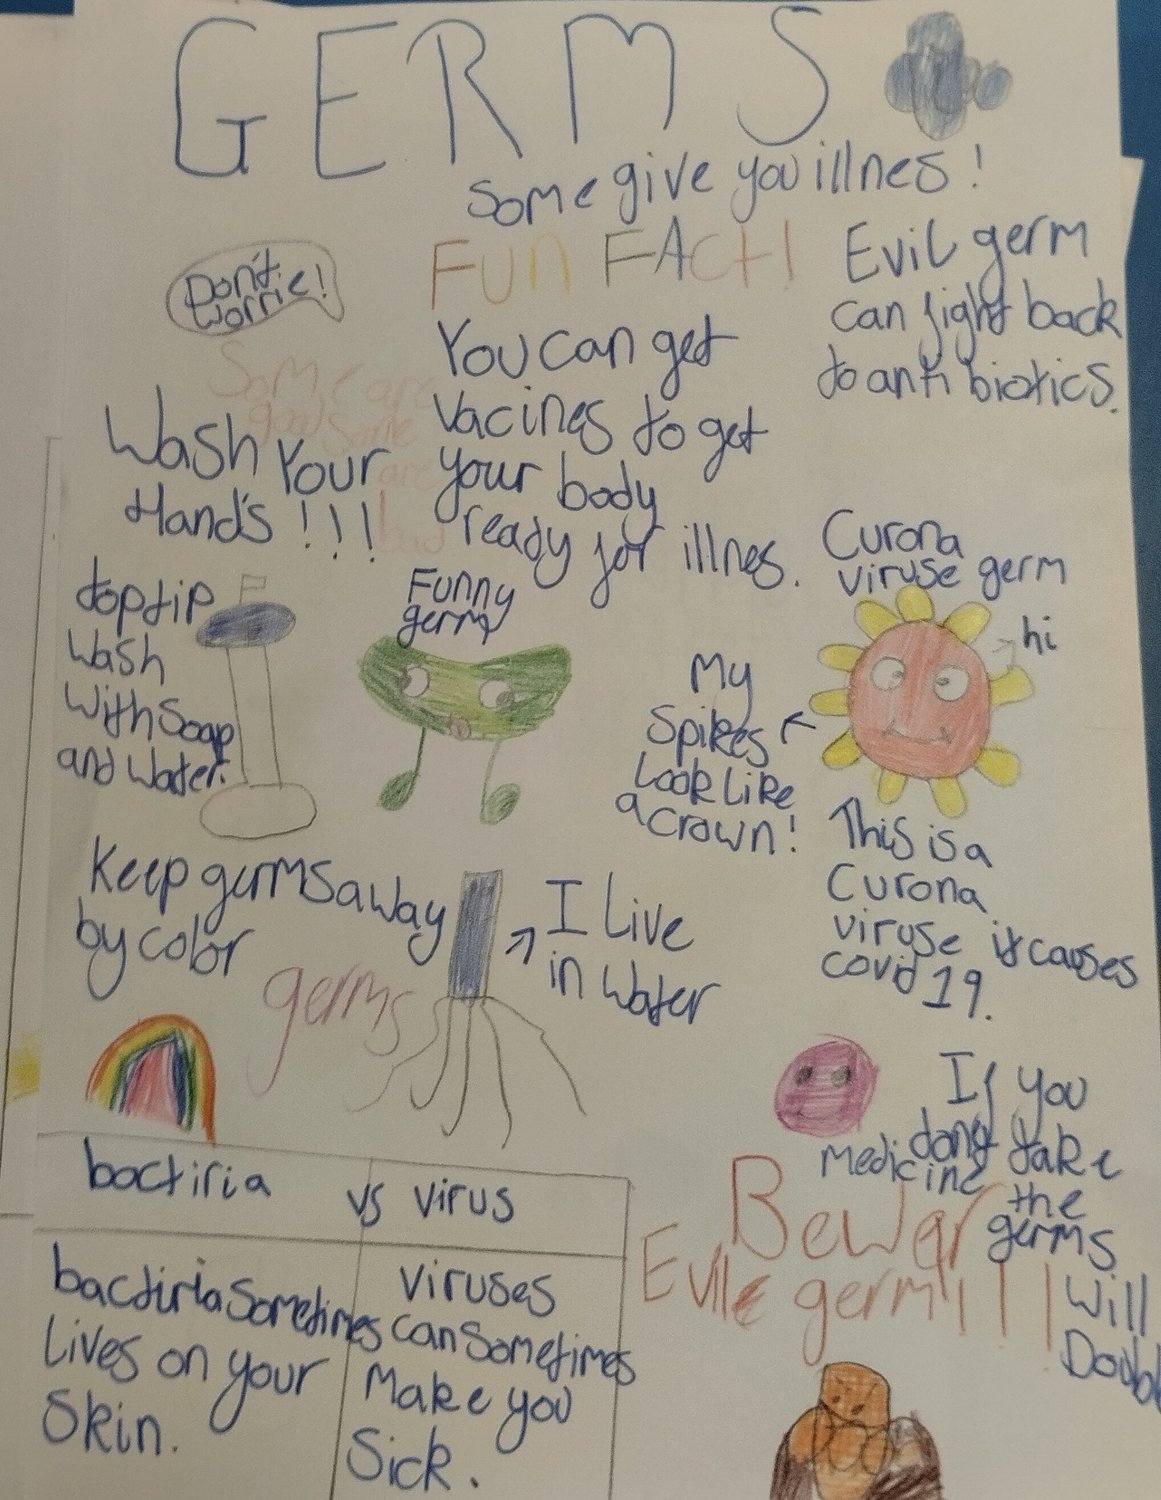 GERMS
Some give you illnes!
Don't
worrie!
Some are
good some
are
bad
FUN FACT!
You can get
vacines to get
your body
ready for illnes.
Evil germ
can fight back
to anti biotics.
Wash Your
Hand's !!!
top tip
wash
with soap
and water.
Funny
germ
Curona
viruse germ
hi
My
Spikes
Look Like
a crown!
This is a
Curona
viruse it causes
covid 19.
Keep germs away
by color
germs
I Live
in water
If you
dont take
Medicine the
germs
Will
Doubl
Bewar
Evile germ!!!
bactiria vs virus
bactiria sometimes
Lives on your
Skin.
Viruses
can sometimes
Make you
Sick.